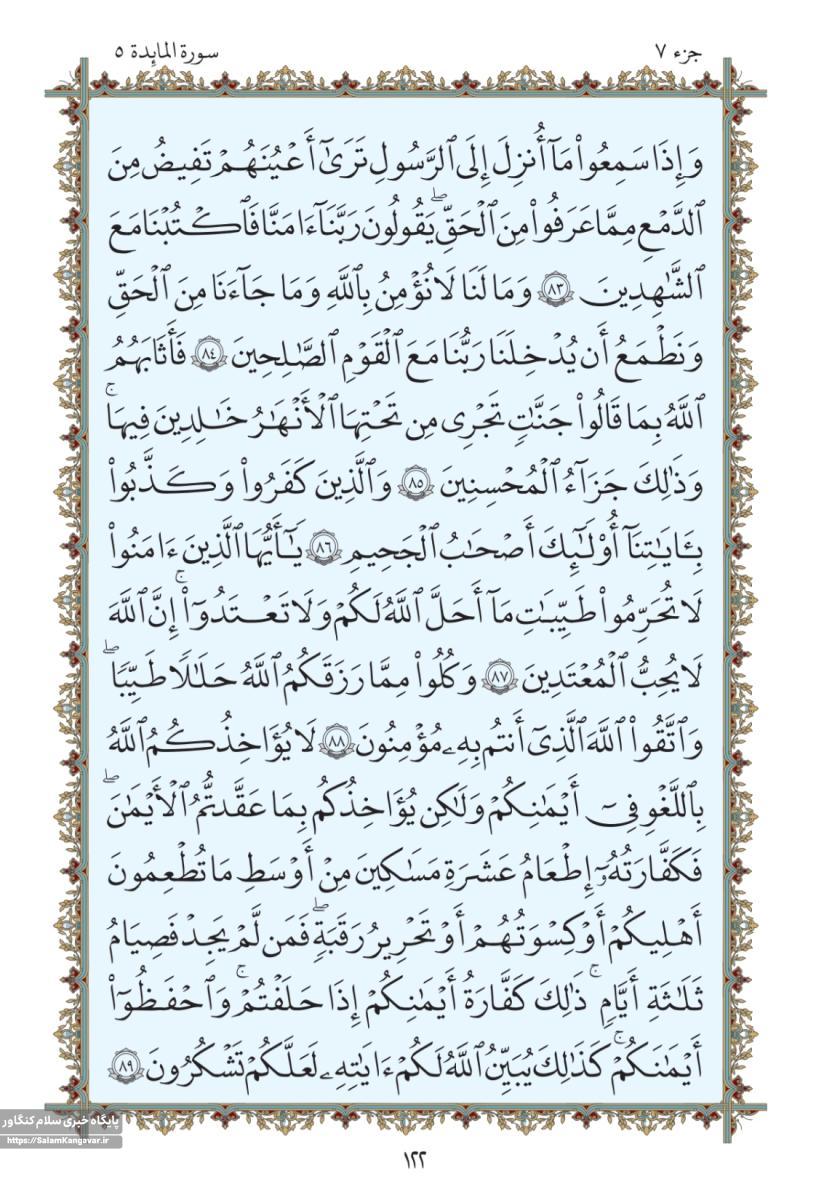 جزء ٧
سورة المائدة ٥
وَإِذَا سَمِعُوا۟ مَآ أُنزِلَ إِلَى ٱلرَّسُولِ تَرَىٰٓ أَعْيُنَهُمْ تَفِيضُ مِنَ
ٱلدَّمْعِ مِمَّا عَرَفُوا۟ مِنَ ٱلْحَقِّ ۖ يَقُولُونَ رَبَّنَآ ءَامَنَّا فَٱكْتُبْنَا مَعَ
ٱلشَّٰهِدِينَ ٨٣ وَمَا لَنَا لَا نُؤْمِنُ بِٱللَّهِ وَمَا جَآءَنَا مِنَ ٱلْحَقِّ
وَنَطْمَعُ أَن يُدْخِلَنَا رَبُّنَا مَعَ ٱلْقَوْمِ ٱلصَّٰلِحِينَ ٨٤ فَأَثَٰبَهُمُ
ٱللَّهُ بِمَا قَالُوا۟ جَنَّٰتٍ تَجْرِى مِن تَحْتِهَا ٱلْأَنْهَٰرُ خَٰلِدِينَ فِيهَا ۚ
وَذَٰلِكَ جَزَآءُ ٱلْمُحْسِنِينَ ٨٥ وَٱلَّذِينَ كَفَرُوا۟ وَكَذَّبُوا۟
بِـَٔايَٰتِنَآ أُو۟لَٰٓئِكَ أَصْحَٰبُ ٱلْجَحِيمِ ٨٦ يَٰٓأَيُّهَا ٱلَّذِينَ ءَامَنُوا۟
لَا تُحَرِّمُوا۟ طَيِّبَٰتِ مَآ أَحَلَّ ٱللَّهُ لَكُمْ وَلَا تَعْتَدُوٓا۟ ۚ إِنَّ ٱللَّهَ
لَا يُحِبُّ ٱلْمُعْتَدِينَ ٨٧ وَكُلُوا۟ مِمَّا رَزَقَكُمُ ٱللَّهُ حَلَٰلًا طَيِّبًا ۖ
وَٱتَّقُوا۟ ٱللَّهَ ٱلَّذِىٓ أَنتُم بِهِۦ مُؤْمِنُونَ ٨٨ لَا يُؤَاخِذُكُمُ ٱللَّهُ
بِٱللَّغْوِ فِىٓ أَيْمَٰنِكُمْ وَلَٰكِن يُؤَاخِذُكُم بِمَا عَقَّدتُّمُ ٱلْأَيْمَٰنَ ۖ
فَكَفَّٰرَتُهُۥٓ إِطْعَامُ عَشَرَةِ مَسَٰكِينَ مِنْ أَوْسَطِ مَا تُطْعِمُونَ
أَهْلِيكُمْ أَوْ كِسْوَتُهُمْ أَوْ تَحْرِيرُ رَقَبَةٍ ۖ فَمَن لَّمْ يَجِدْ فَصِيَامُ
ثَلَٰثَةِ أَيَّامٍ ۚ ذَٰلِكَ كَفَّٰرَةُ أَيْمَٰنِكُمْ إِذَا حَلَفْتُمْ ۚ وَٱحْفَظُوٓا۟
أَيْمَٰنَكُمْ ۚ كَذَٰلِكَ يُبَيِّنُ ٱللَّهُ لَكُمْ ءَايَٰتِهِۦ لَعَلَّكُمْ تَشْكُرُونَ ٨٩
پایگاه خبری سلام کنگاور
https://SalamKangavar.ir
١٢٢